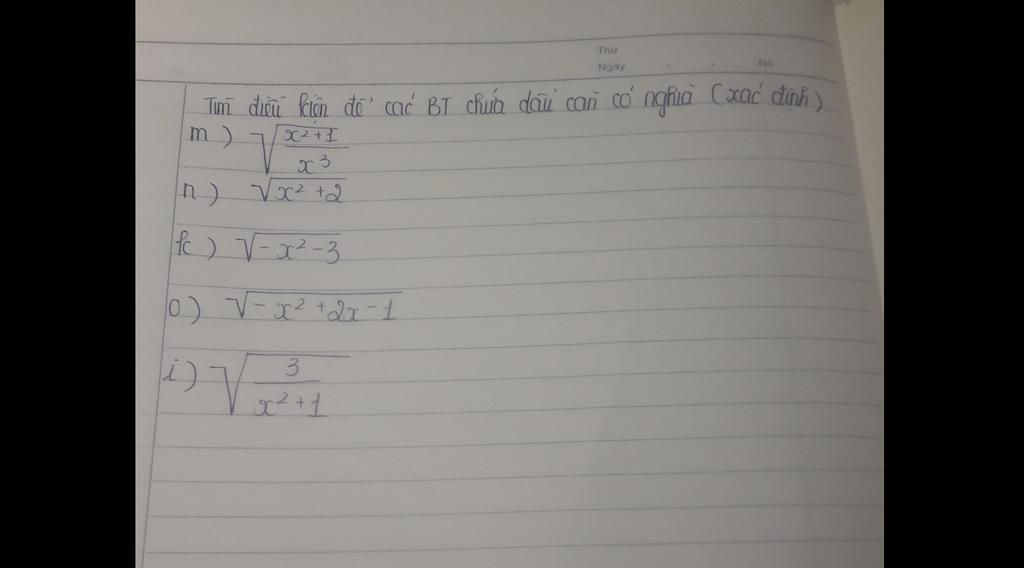 Thứ
Ngày . . No
Tìm điều kiện để các BT chứa dấu căn có nghĩa (xác định)
m) √((x²+1)/(x³))
n) √(x²+2)
k) √(-x²-3)
o) √(-x²+2x-1)
i) √(3/(x²+1))